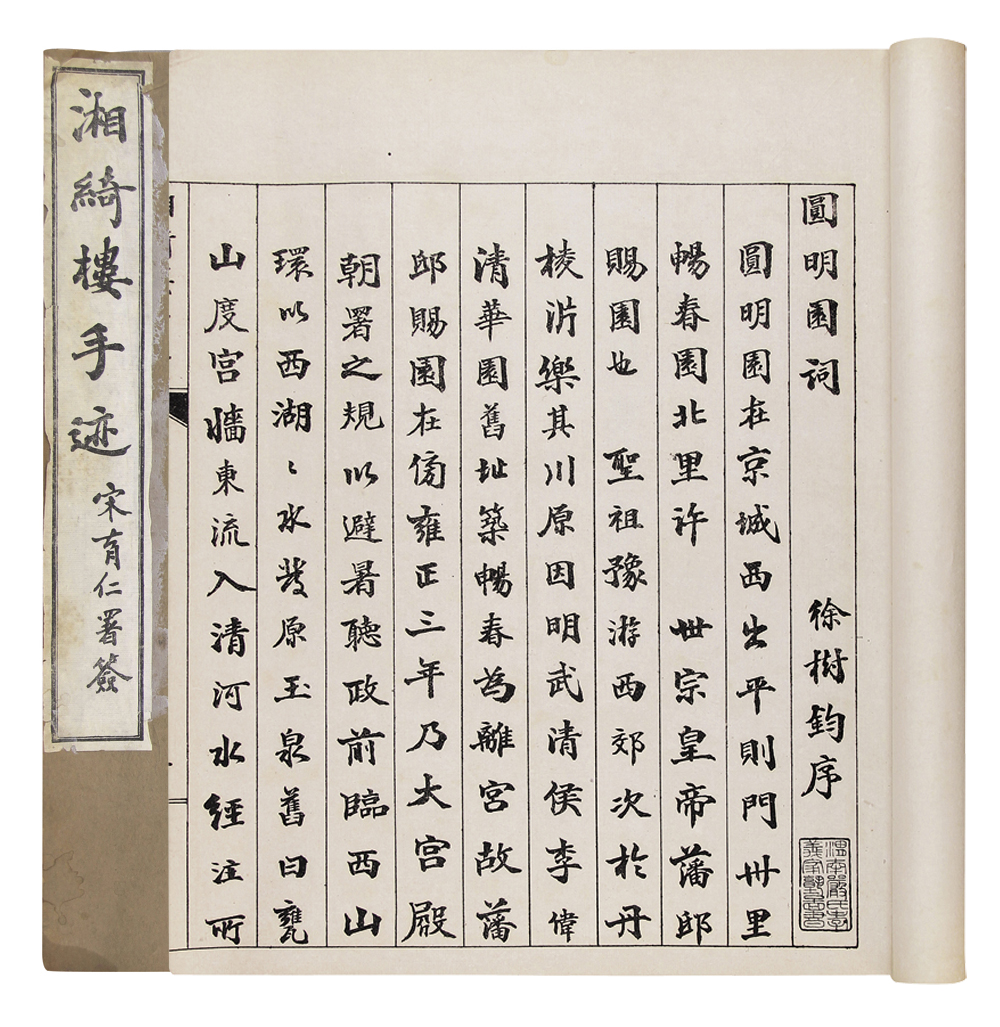 湘綺樓手迹
宋育仁署簽
圓明園詞　徐樹鈞序
渭南嚴氏孝
義家塾
圓明園在京城西出平則門卅里
暢春園北里許　世宗皇帝藩邸
賜園也　聖祖豫游西郊次於丹
棱沜樂其川原因明武清侯李偉
清華園舊址築暢春為離宮故藩
邸賜園在傍雍正三年乃大宮殿
朝署之規以避暑聽政前臨西山
環以西湖〻水發原玉泉舊曰甕
山度宮牆東流入清河水經注所